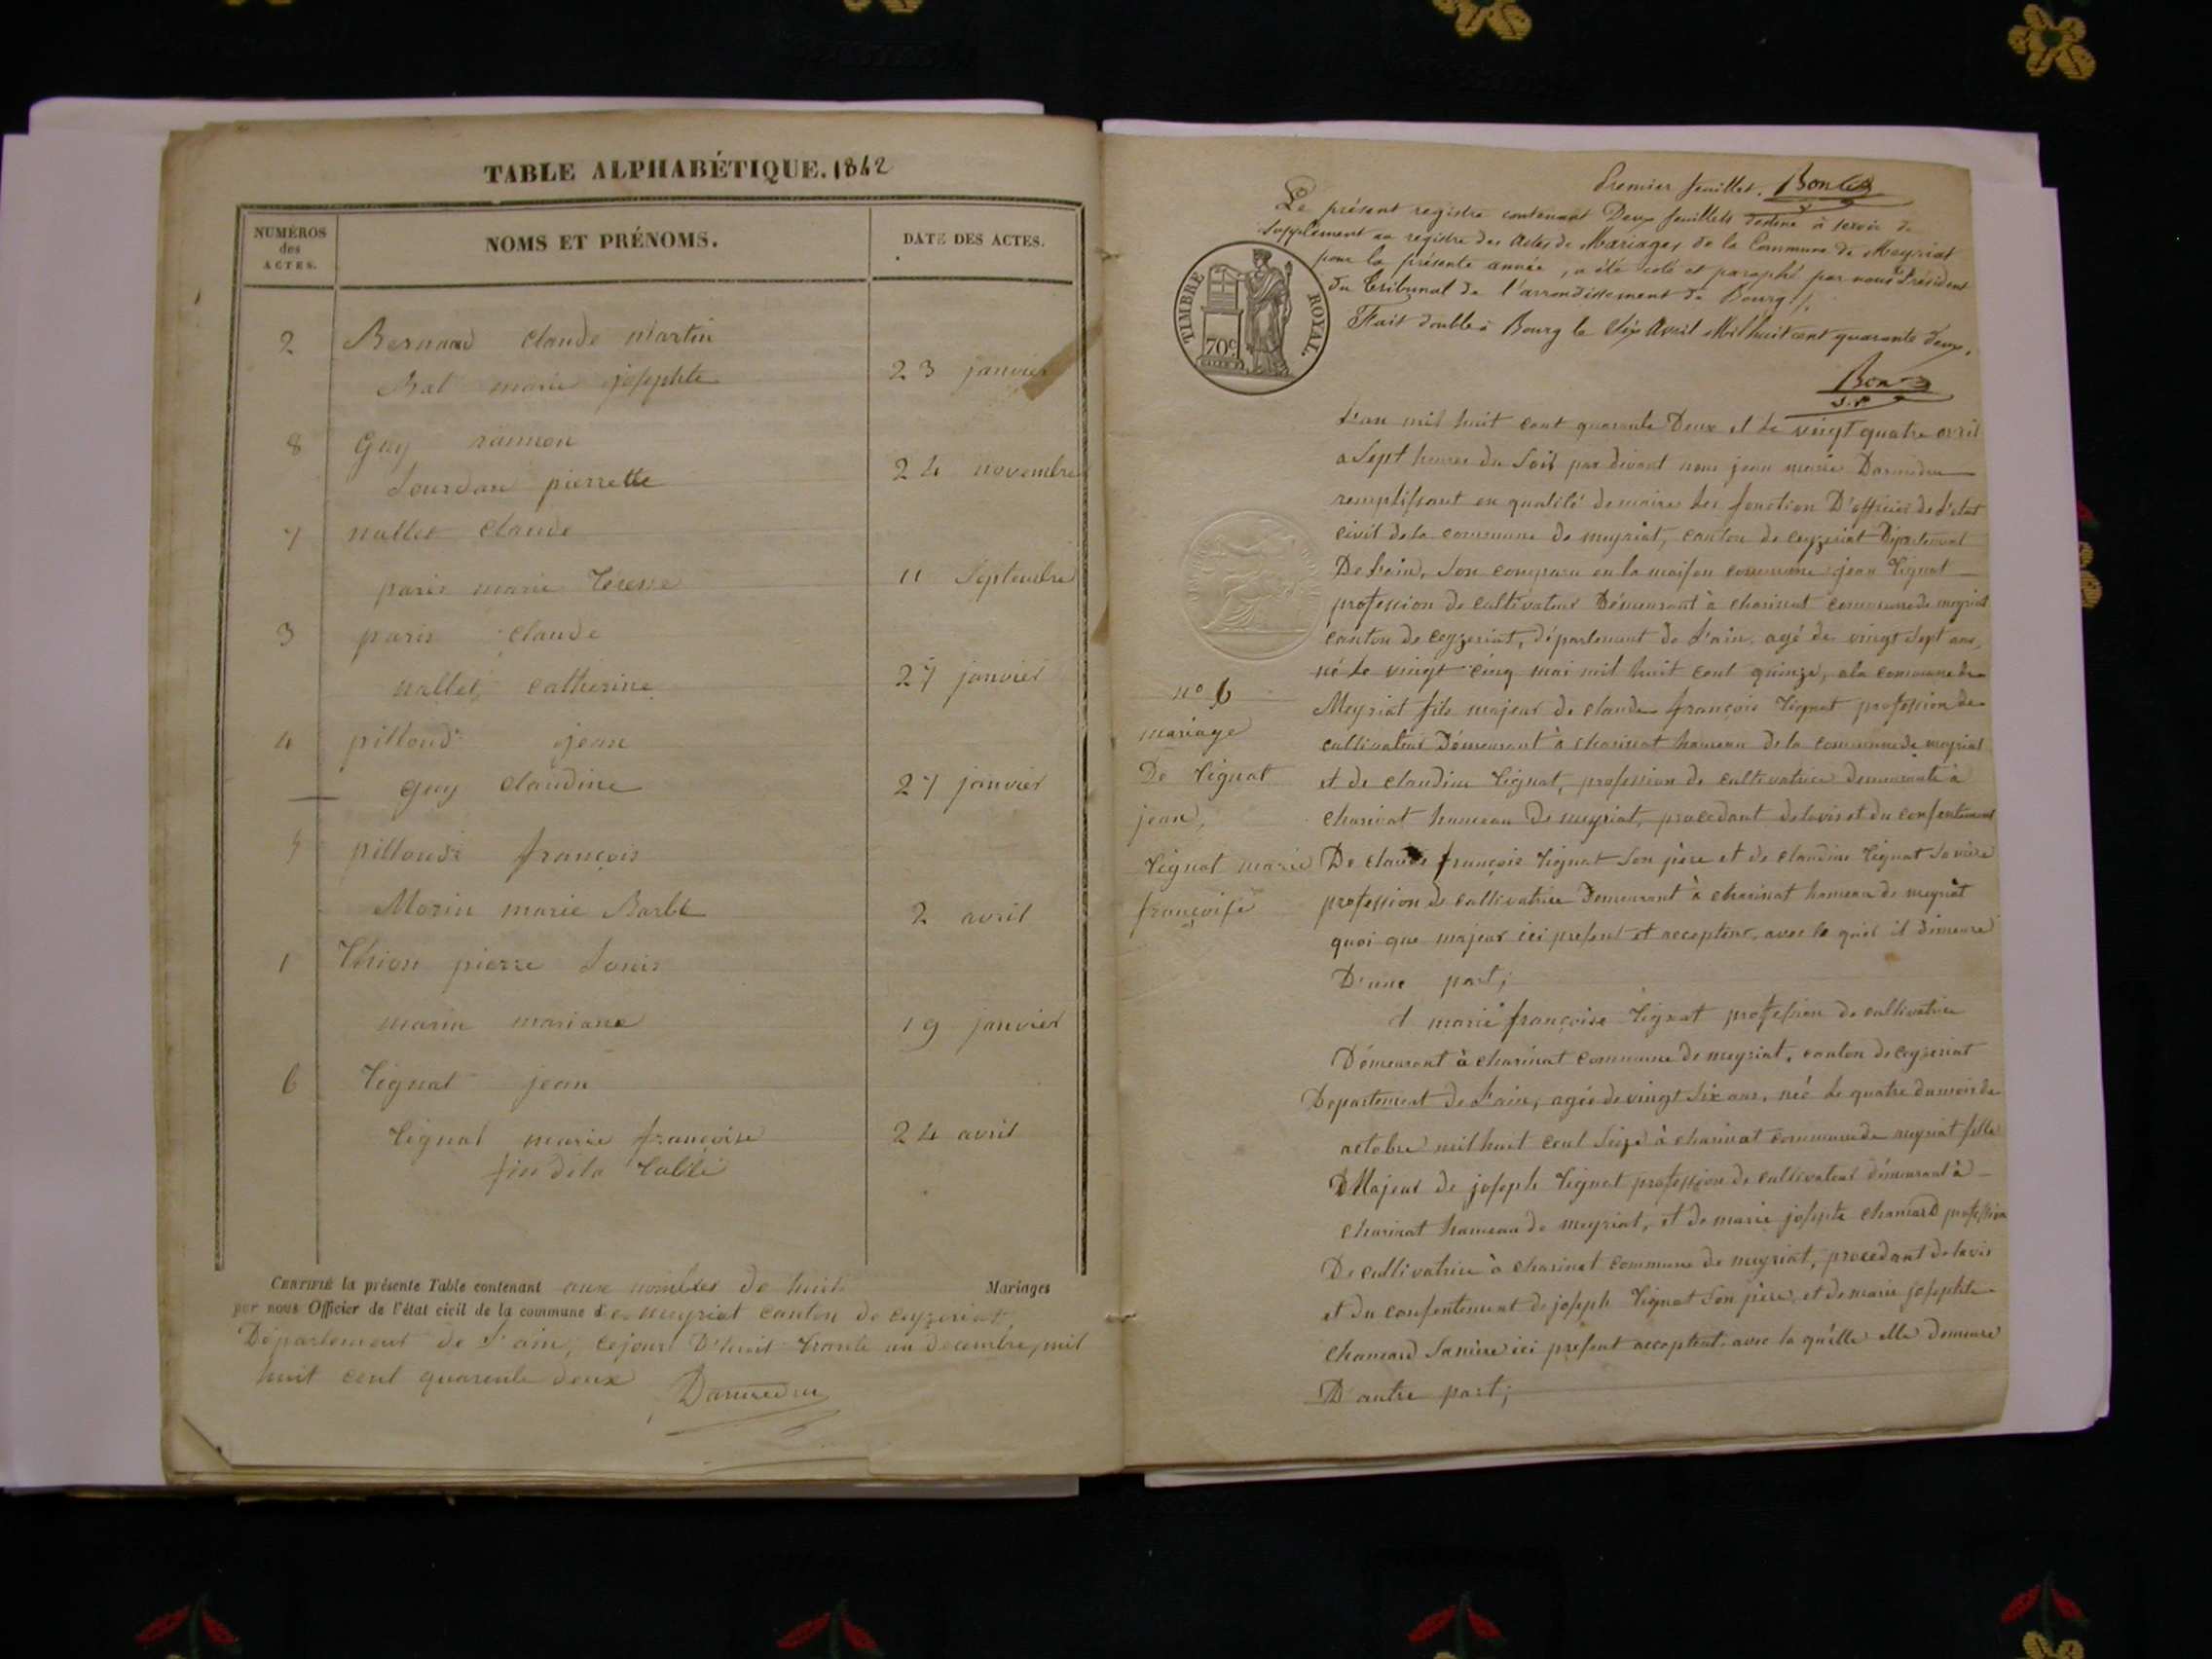 TABLE ALPHABÉTIQUE. 1842
NUMÉROS des ACTES.
NOMS ET PRÉNOMS.
DATE DES ACTES.
2 Bernard claude martin
Bal marie josephte 23 janvier
8 Guy
Jourdan pierrette 24 novembre
7 nallet claude
paris marie 11 Septembre
3 paris claude
nallet catherine 27 janvier
4 pilloud jean
guy claudine 27 janvier
5 pilloud françois
Morin marie Barbe 2 avril
1 Thion pierre Louis
marin mariane 19 janvier
6 Tignat jean
tignat marie françoise 24 avril
fin de la table
CERTIFIÉ la présente Table contenant aux nombres de huit Mariages
par nous Officier de l'état civil de la commune de meyriat canton de ceyzeriat,
Département de l'ain, cejour D'huit trente un decembre, mil
huit cent quarente deux
Premier feuillet.
Le présent registre contenant Deux feuillets destiné à servir de
supplément au registre des Actes de Mariages de la Commune de Meyriat
pour la présente année, a été coté et paraphé par nous Président
du Tribunal de l'arrondissement de Bourg
Fait double à Bourg le dix Avril Mil huit cent quarante deux.
TIMBRE ROYAL.
70c
L'an mil huit cent quarante Deux et le vingt quatre avril
a Sept heures du Soir par devant nous jean marie
remplissant en qualité de maire les fonction D'officier de l'etat
civil de la commune de meyriat, canton de ceyzeriat Département
De l'ain, Son comparu en la maison commune jean tignat
profession de cultivateur Démeurant à chasinat commune de meyriat
canton de ceyzeriat, département de l'ain, agé de vingt Sept ans,
né le vingt cinq mai mil huit cent quinze, a la commune de
Meyriat fils majeur de claude françois tignat profession de
cultivateur Démeurant à chasinat hameau de la commune de meyriat
et de claudine tignat, profession de cultivatrice demeurante à
chasinat hameau De meyriat, procedant de lavis et du consentement
De claude françois tignat Son père et de claudine tignat Sa mère
profession de cultivatrice Demeurant à chasinat hameau de meyriat
quoi que majeur ici present et acceptent, avec le quel il dimeure
D'une part;
n° 6
mariage
De tignat
jean,
tignat marie
françoise
et marie françoise tignat profession de cultivatrice
Démeurant à chasinat commune de meyriat, canton de ceyzeriat
Departement de l'ain, agée de vingt Six ans, née le quatre du mois de
octobre mil huit cent Seize à chasinat commune de meyriat fille
Majeur de joseph tignat profession de cultivateur démeurant à
chasinat hameau de meyriat, et de marie josephte chanard profession
De cultivatrice à chasinat commune de meyriat, procedant de lavis
et du consentement de joseph tignat Son père, et de marie josephte
chanard Sa mère ici present acceptent avec la quelle elle demeure
D'autre part;